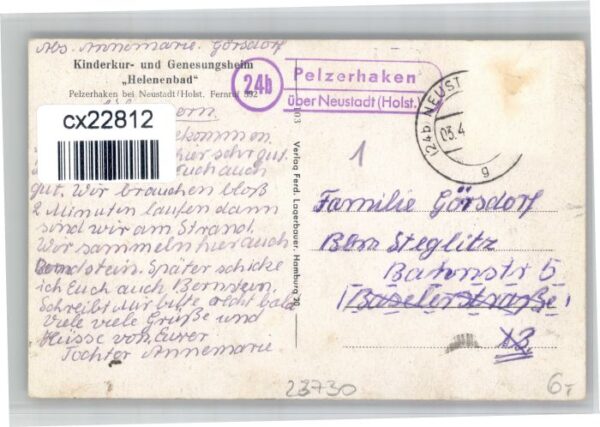 Abs. Annemarie. Görsdorf
Kinderkur- und Genesungsheim
„Helenenbad“
Pelzerhaken bei Neustadt/Holst. Fernruf 392
cx22812
gekommen.
hier sehr gut.
auch
gut. Wir brauchen bloß
2 Minuten laufen dann
sind wir am Strand.
Wir sammeln hier auch
Bernstein. Später schicke
ich Euch auch Bernstein.
Schreibt mir bitte recht bald
Viele viele Grüße und
Küsse von Eurer
Tochter Annemarie
103 Verlag Ferd. Lagerbauer, Hamburg 20
24b
Pelzerhaken
über Neustadt (Holst.)
(24b) NEUST
03.4
g
1
Familie Görsdorf
Bln Steglitz
Bahnstr 5
Baselerstraße
23730
6,-